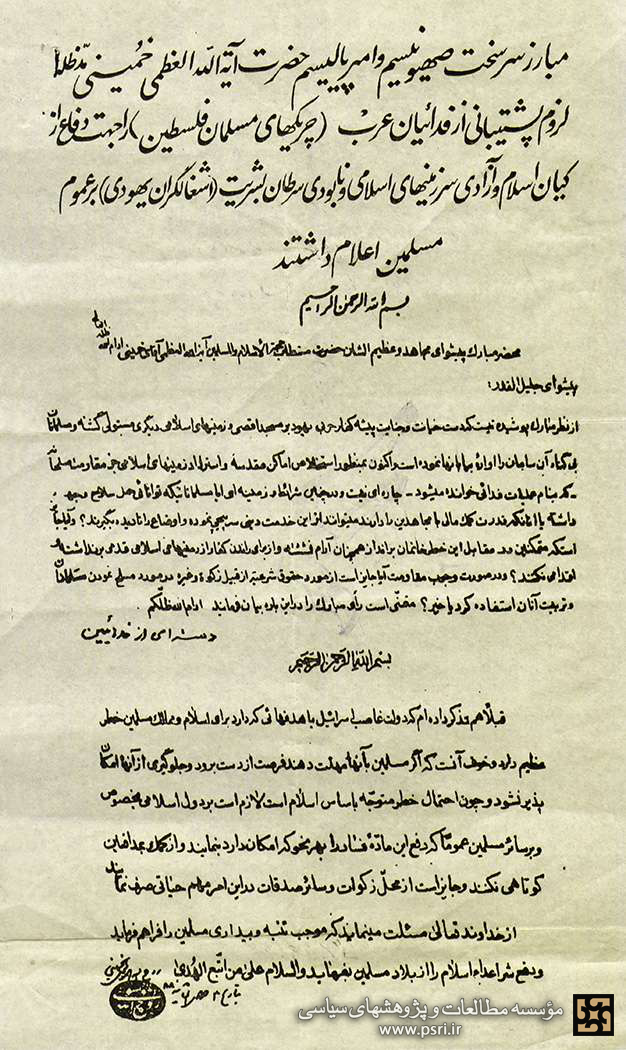 مبارز سرسخت صهیونیسم و امپریالیسم حضرت آیة الله العظمی خمینی مدظله
لزوم پشتیبانی از فدائیان عرب (چریکهای مسلمان فلسطین) را جهت دفاع از
کیان اسلام و آزادی سرزمینهای اسلامی و نابودی سرطان بشریت (اشغالگران یهودی) بر عموم
مسلمین اعلام داشتند
بسم الله الرحمن الرحیم
محضر مبارک پیشوای مجاهد و عظیم الشان حضرت مستطاب حجة الاسلام والمسلمین آیة الله العظمی آقای خمینی ادام الله ظله
پیشوای جلیل القدر:
از نظر مبارک پوشیده نیست که دست خیانت و جنایت پیشه کفار حربی یهود بر مسجد اقصی و زمینهای اسلامی دیگری مستولی گشته و مسلمانان
بی گناه آن سامان را آواره بیابانها نموده است و اکنون بمنظور استخلاص اماکن مقدسه و استرداد زمینهای اسلامی جز مقاومت مسلحانه
که بنام عملیات فدائی خوانده میشود - چاره ای نیست و در چنین شرائط و زمینه ای آیا مسلمانانیکه توانائی حمل سلاح
داشته یا آنانکه قدرت کمک مالی با مجاهدین را دارند میتوانند از این خدمت دینی سرپیچی نموده و اوضاع را نادیده بگیرند؟
متمکنین در مقابل این خطر خانمان برانداز همچنان آرام نشسته و از برای راندن کفار از زمینهای اسلامی قدمی برنداشته و
اقدامی نکنند؟ و در صورت وجوب مقاومت آیا جایز است از مورد حقوق شرعیه از قبیل زکوة و غیره در مورد مسلح نمودن مسلمانان
و تربیت آنان استفاده کرد یا خیر؟ مقتضی است رأی مبارک را در این باره بیان فرمایند ادام الله ظلکم
دسته ای از فدائیین
بسم الله الرحمن الرحیم
قبلاً هم تذکر داده ام که دولت غاصب اسرائیل با هدفهائی که دارد برای اسلام و ممالک مسلمین خطر
عظیم دارد و خوف آنست که اگر مسلمین بآنها مهلت دهند فرصت از دست برود و جلوگیری از آنها امکان
پذیر نشود و چون احتمال خطر متوجه باساس اسلام است لازم است بر دول اسلامی بخصوص
و بر سائر مسلمین عموماً که دفع این ماده فساد را بهر نحو که امکان دارد بنمایند و از کمک بمدافعین
کوتاهی نکنند و جایز است از محل زکوات و سائر صدقات در این امر مهم حیاتی صرف نمایند
از خداوند تعالی مسئلت مینمایند که موجب تنبه و بیداری مسلمین را فراهم فرماید
و دفع شر اعداء اسلام را از بلاد مسلمین بفرماید والسلام علی من اتبع الهدی
مؤسسه مطالعات و پژوهشهای سیاسی
www.psri.ir